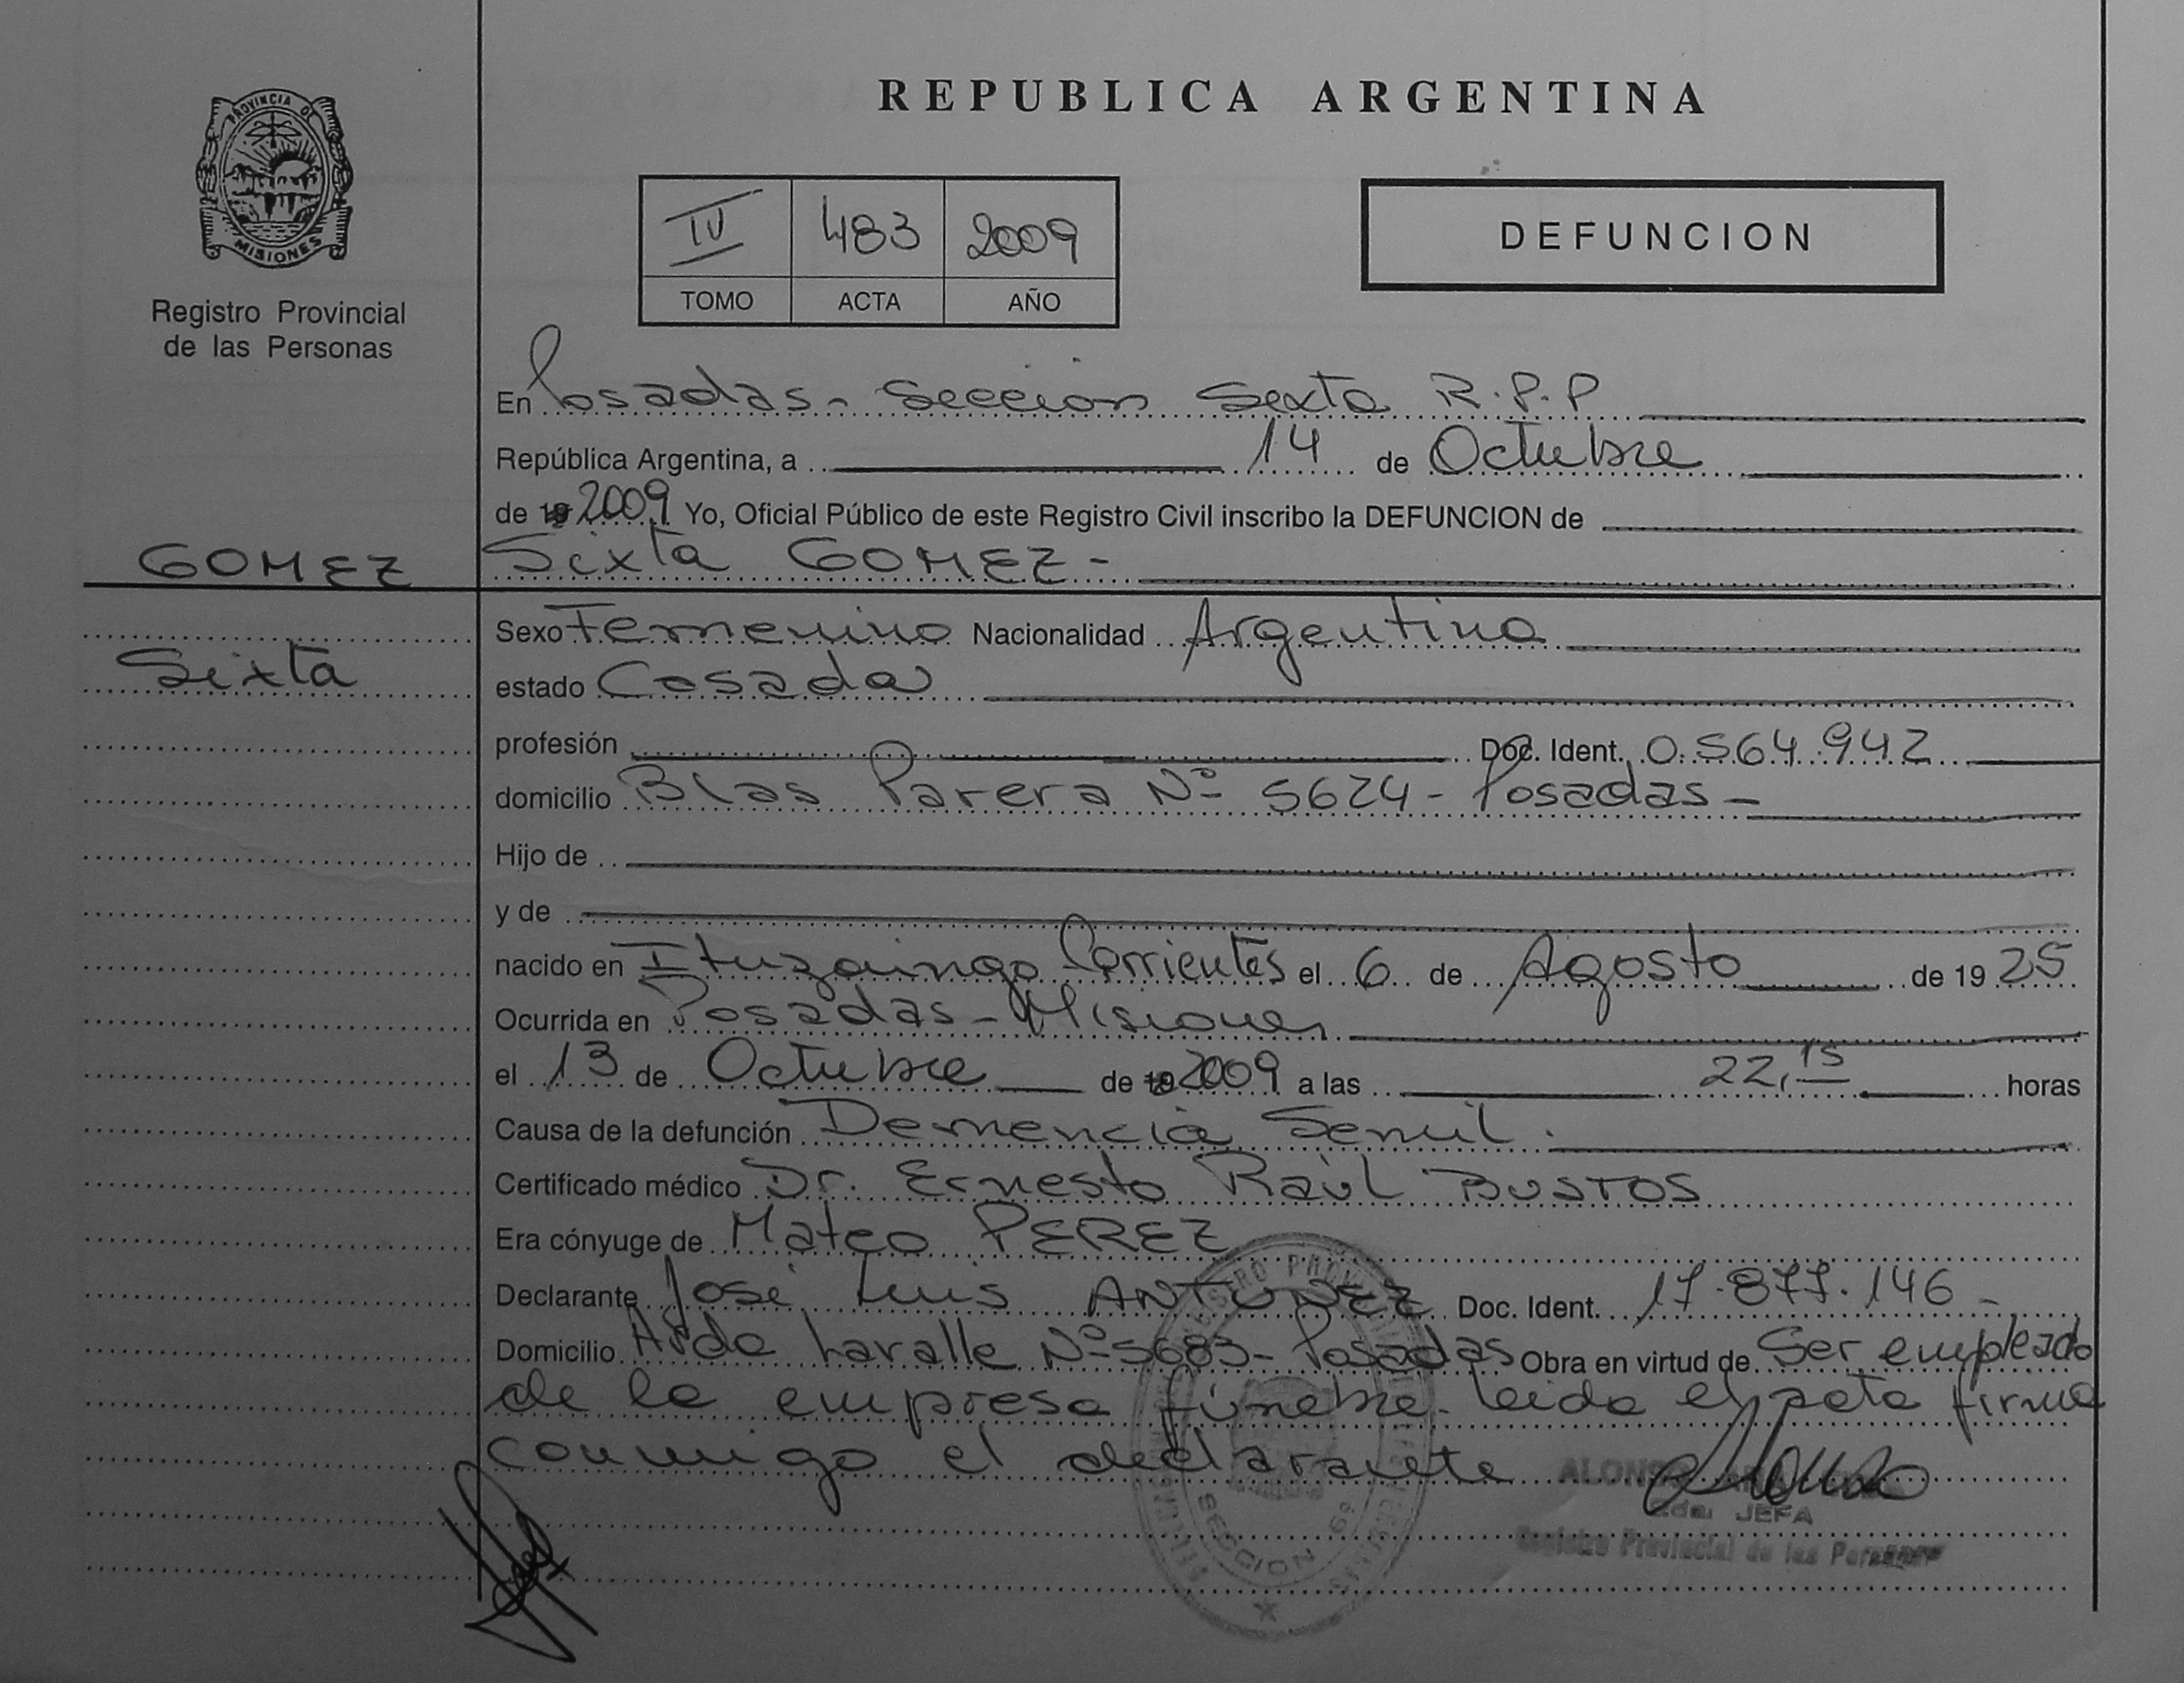 REPUBLICA ARGENTINA
PROVINCIA DE
MISIONES
Registro Provincial
de las Personas
IV 483 2009
TOMO ACTA AÑO
DEFUNCION
En Posadas - Sección Sexta R.P.P
República Argentina, a 14 de Octubre
de 19 2009 Yo, Oficial Público de este Registro Civil inscribo la DEFUNCION de
GOMEZ
Sixta
Sixta GOMEZ -
Sexo Femenino Nacionalidad Argentina
estado Casada
profesión Doc. Ident. 0.564.942
domicilio Blas Parera Nº 5624 - Posadas -
Hijo de
y de
nacido en Ituzaingo Corrientes el 6 de Agosto de 19 25
Ocurrida en Posadas - Misiones
el 13 de Octubre de 19 2009 a las 22,15 horas
Causa de la defunción Demencia Senil.
Certificado médico Dr. Ernesto Raúl BUSTOS
Era cónyuge de Mateo PEREZ
Declarante José Luis ANTUNEZ Doc. Ident. 17.877.146 -
Domicilio Avda Lavalle Nº 5683 - Posadas Obra en virtud de Ser empleado
de la empresa fúnebre. Leida el acta firma
conmigo el declarante
JEFA
Registro Provincial de las Personas
SECCION 6ª